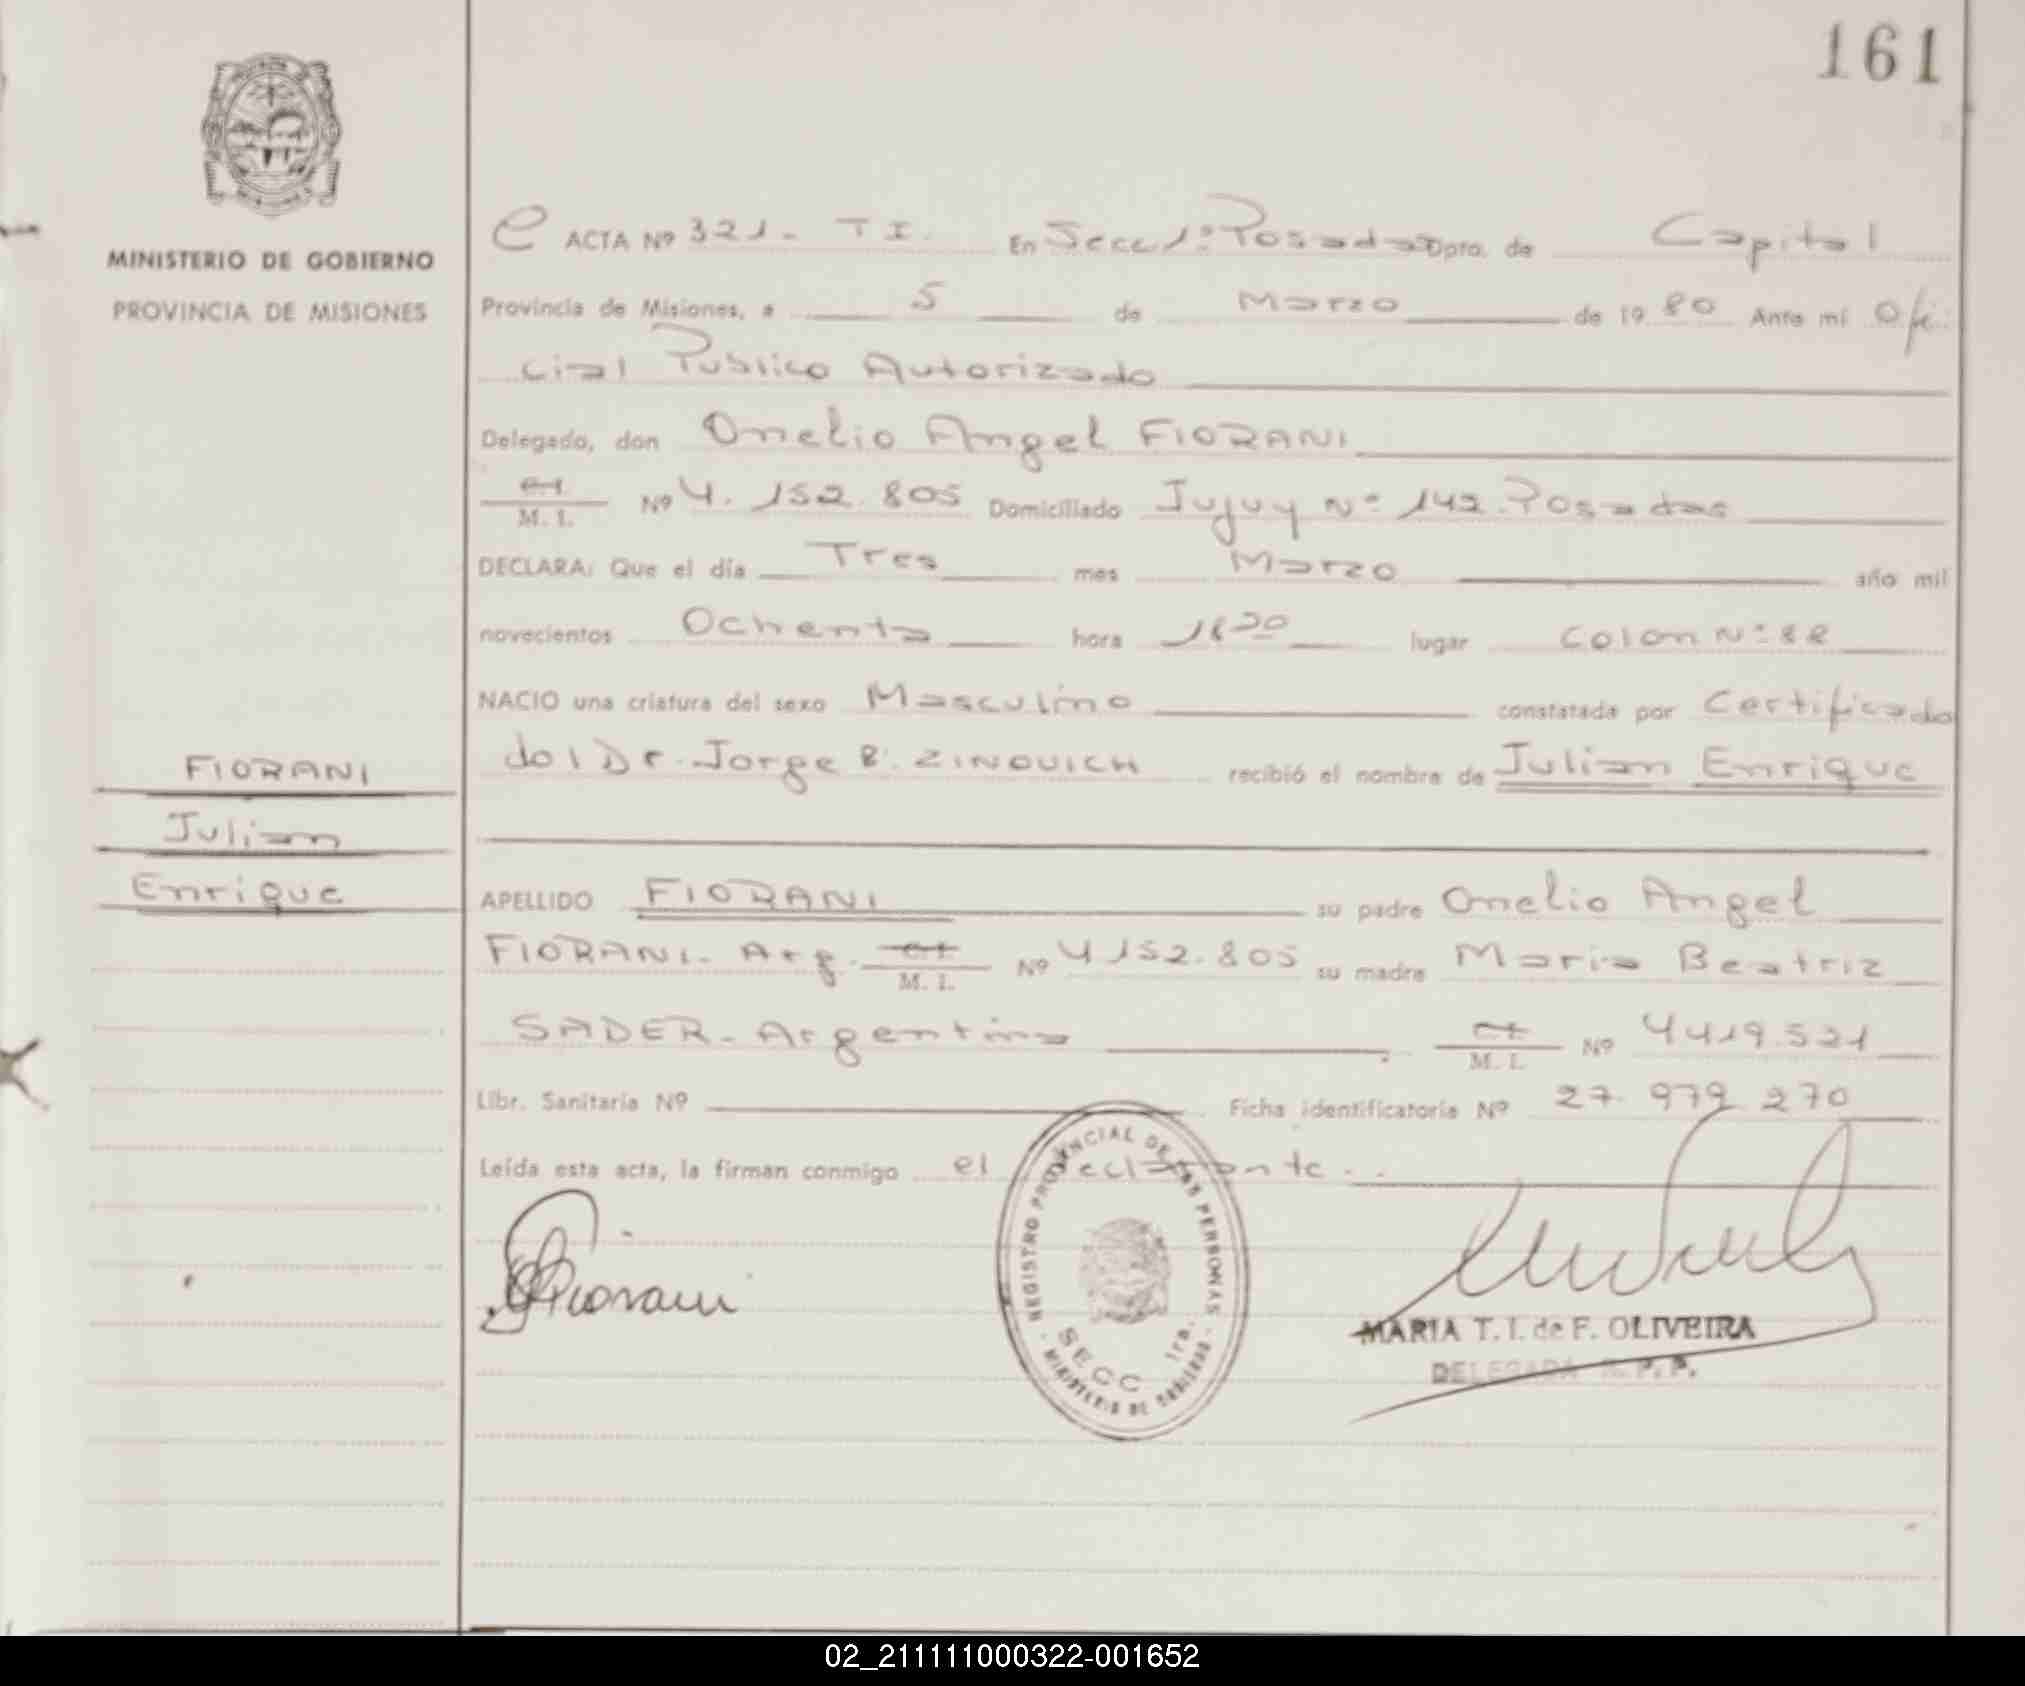 161
MINISTERIO DE GOBIERNO
PROVINCIA DE MISIONES
ACTA Nº 321- T I. En Secc 1ª Posadas Dpto. de Capital
Provincia de Misiones, a 5 de Marzo de 19 80 Ante mi Ofi
cial Publico Autorizado
Delegado, don Onelio Angel FIORANI
M. I. Nº 4.152.805 Domiciliado Jujuy Nº 142. Posadas
DECLARA: Que el día Tres mes Marzo año mil
novecientos Ochenta hora lugar Colon Nº 82
NACIO una criatura del sexo Masculino constatada por Certificado
del Dr. Jorge B. ZINOVICH recibió el nombre de Julian Enrique
FIORANI
Julian
Enrique
APELLIDO FIORANI su padre Onelio Angel
FIORANI- Arg. M. I. Nº 4152.805 su madre Maria Beatriz
SADER- Argentina M. I. Nº 4419.521
Libr. Sanitaria Nº Ficha identificatoria Nº 27. 979 270
Leída esta acta, la firman conmigo el declarante.
Fiorani
REGISTRO PROVINCIAL DE LAS PERSONAS
SECC 1ra.
MINISTERIO DE GOBIERNO
MARIA T. I. de F. OLIVEIRA
DELEGADA R. P. P.
02_211111000322-001652